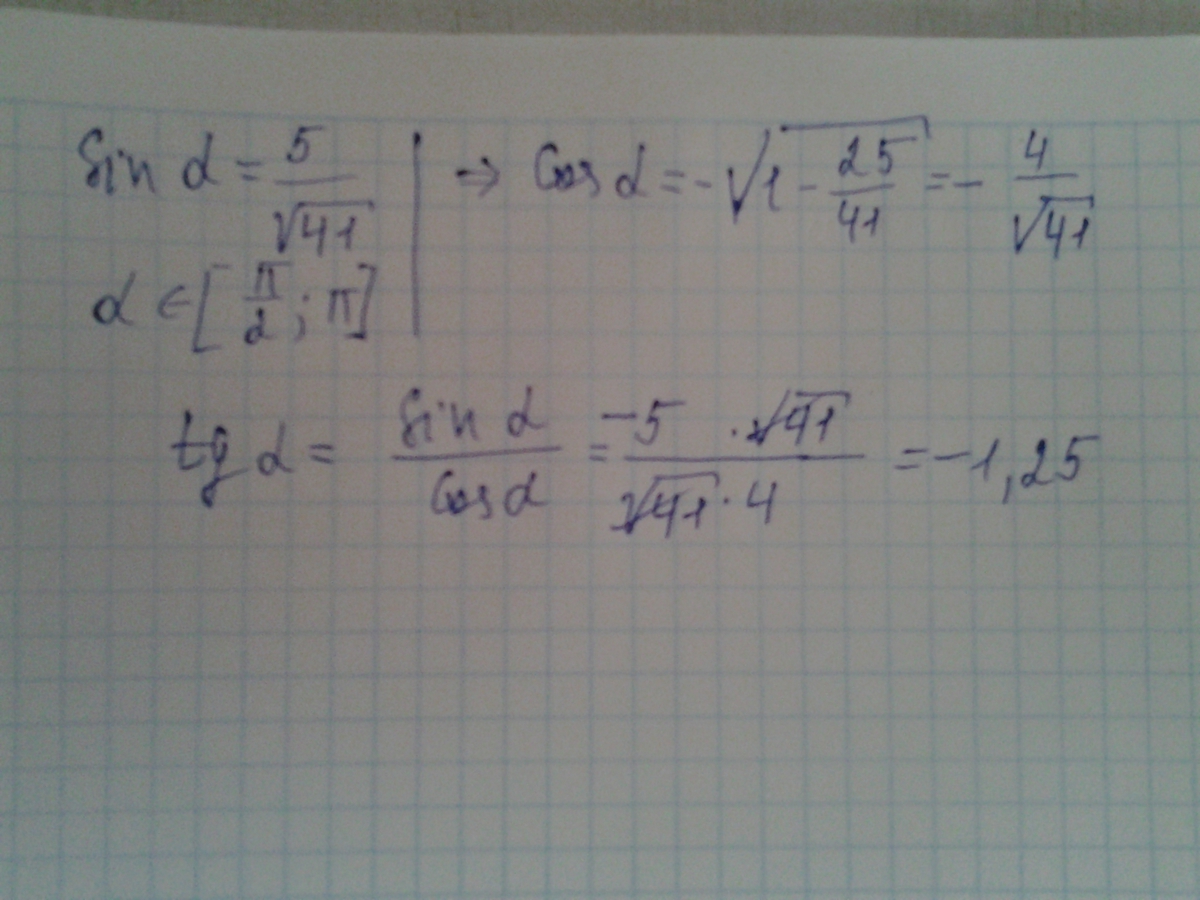 sin α = 5/√41 | ⇒ cos α = -√(1 - 25/41) = - 4/√41
α ∈ [π/2; π]
tg α = sin α/cos α = -5 · √41/√41 · 4 = -1,25